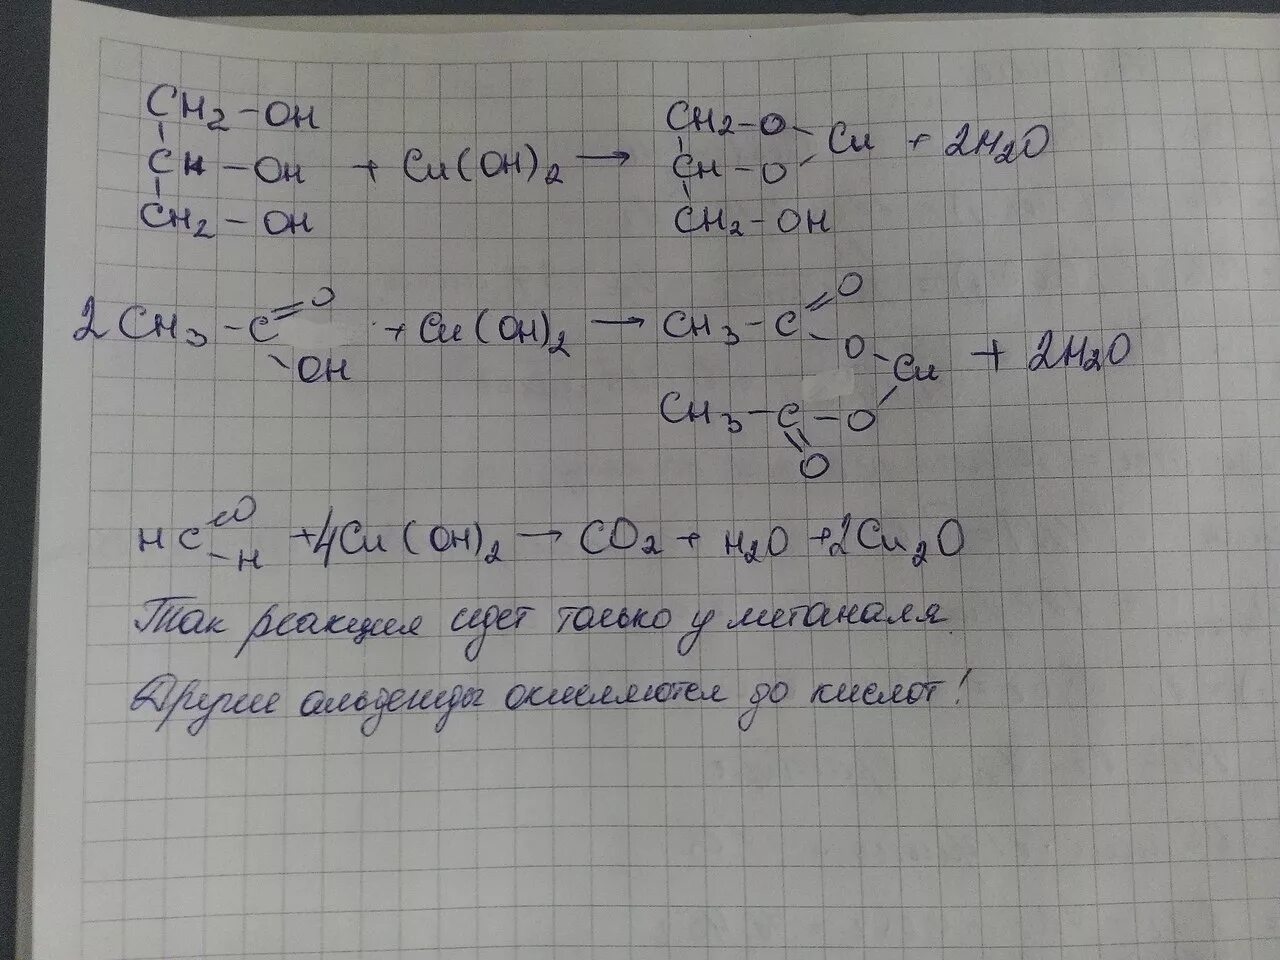 CH2-OH CH2-O
CH-OH + Cu(OH)2 → CH-O Cu + 2H2O
CH2-OH CH2-OH
2CH3-C=O + Cu(OH)2 → CH3-C=O
OH O-Cu + 2H2O
CH3-C-O
O
HC=O -H +4Cu(OH)2 → CO2 + H2O +2Cu2O
Так реакция идет только у метаналя
Другие альдегиды окисляются до кислот!